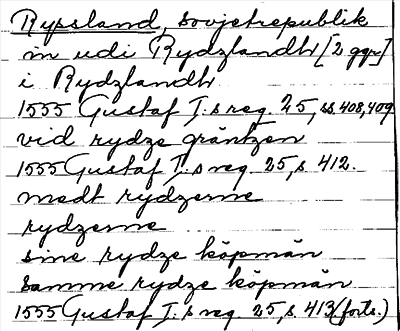 Ryssland, sovjetrepublik
in udi Rydzlandtz [2 ggr]
i Rydzlandtz
1555 Gustaf I:s reg. 25, ss. 408, 409
vid rydze gräntzen
1555 Gustaf I:s reg. 25, s. 412.
medt rydzerne
rydzerne
sine rydze köpmän
samme rydze köpmän
1555 Gustaf I:s reg. 25, s. 413 (forts.)